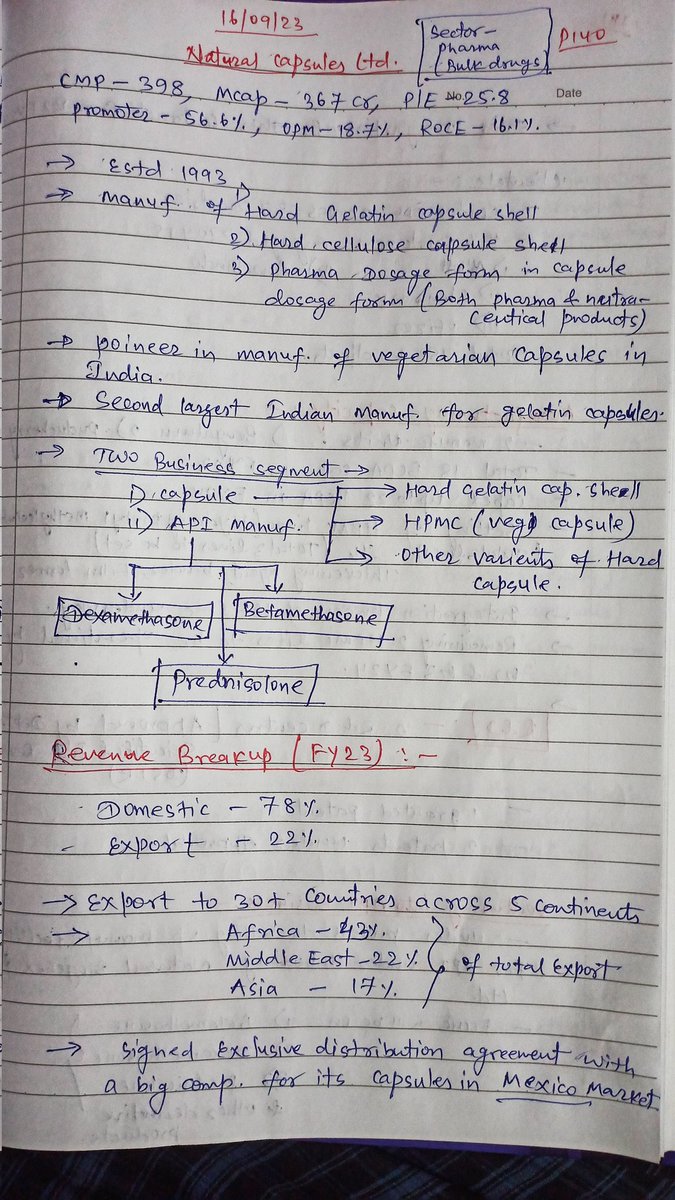 16/09/23
Sector-
pharma
(Bulk drugs)
P140
Natural capsules Ltd.
Date
CMP - 398, Mcap - 367 cr, P/E No 25.8
promoter - 56.6%, OPM - 18.7%, ROCE - 16.1%.
→ Estd 1993
→ manuf. of 1) Hard Gelatin capsule shell
2) Hard cellulose capsule shell
3) pharma Dosage form in capsule
dosage form (Both pharma & neutra-
ceutical products)
→ poineer in manuf. of vegetarian capsules in
India.
→ Second largest Indian manuf. for gelatin capsules.
→ Two Business segment →
i) capsule → Hard Gelatin cap. shell
ii) API manuf. → HPMC (veg) capsule)
→ other varients of Hard
capsule.
Dexamethasone
Betamethasone
Prednisolone
Revenue Breakup (FY23) :-
Domestic - 78%.
- Export - 22%.
→ Export to 30+ Countries across 5 continents
→ Africa - 43%.
Middle East - 22%. of total Export
Asia - 17%.
→ signed Exclusive distribution agreement with
a big comp. for its capsules in Mexico Market